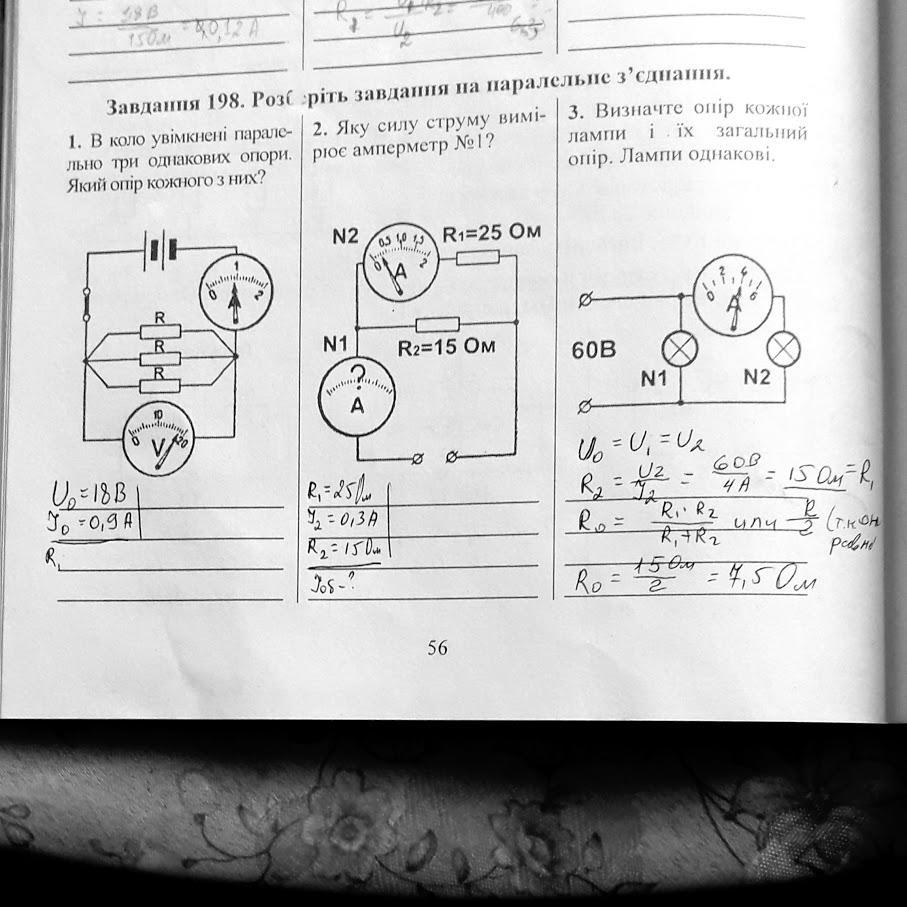 J = 1,8В / 15Ом = 0,12 А
R₂ =
U₂
Завдання 198. Розберіть завдання на паралельне з’єднання.
1. В коло увімкнені парале-
льно три однакових опори.
Який опір кожного з них?
0 1 2
A
R
R
R
0 10 20
V
U₀ = 18В
J₀ = 0,9А
R₁
2. Яку силу струму вимі-
рює амперметр №1?
N2
0 0,5 1,0 1,5 2
A
R1=25 Ом
R2=15 Ом
N1
?
A
R₁ = 25Ом
J₂ = 0,3А
R₂ = 15Ом
Jоб - ?
3. Визначте опір кожної
лампи і їх загальний
опір. Лампи однакові.
0 2 4 6
A
60В
N1
N2
U₀ = U₁ = U₂
R₂ = U₂ / J₂ = 60В / 4А = 15 Ом = R₁
R₀ = R₁·R₂ / R₁+R₂ или R / 2 (т.к он
равны
R₀ = 15Ом / 2 = 7,5 Ом
56